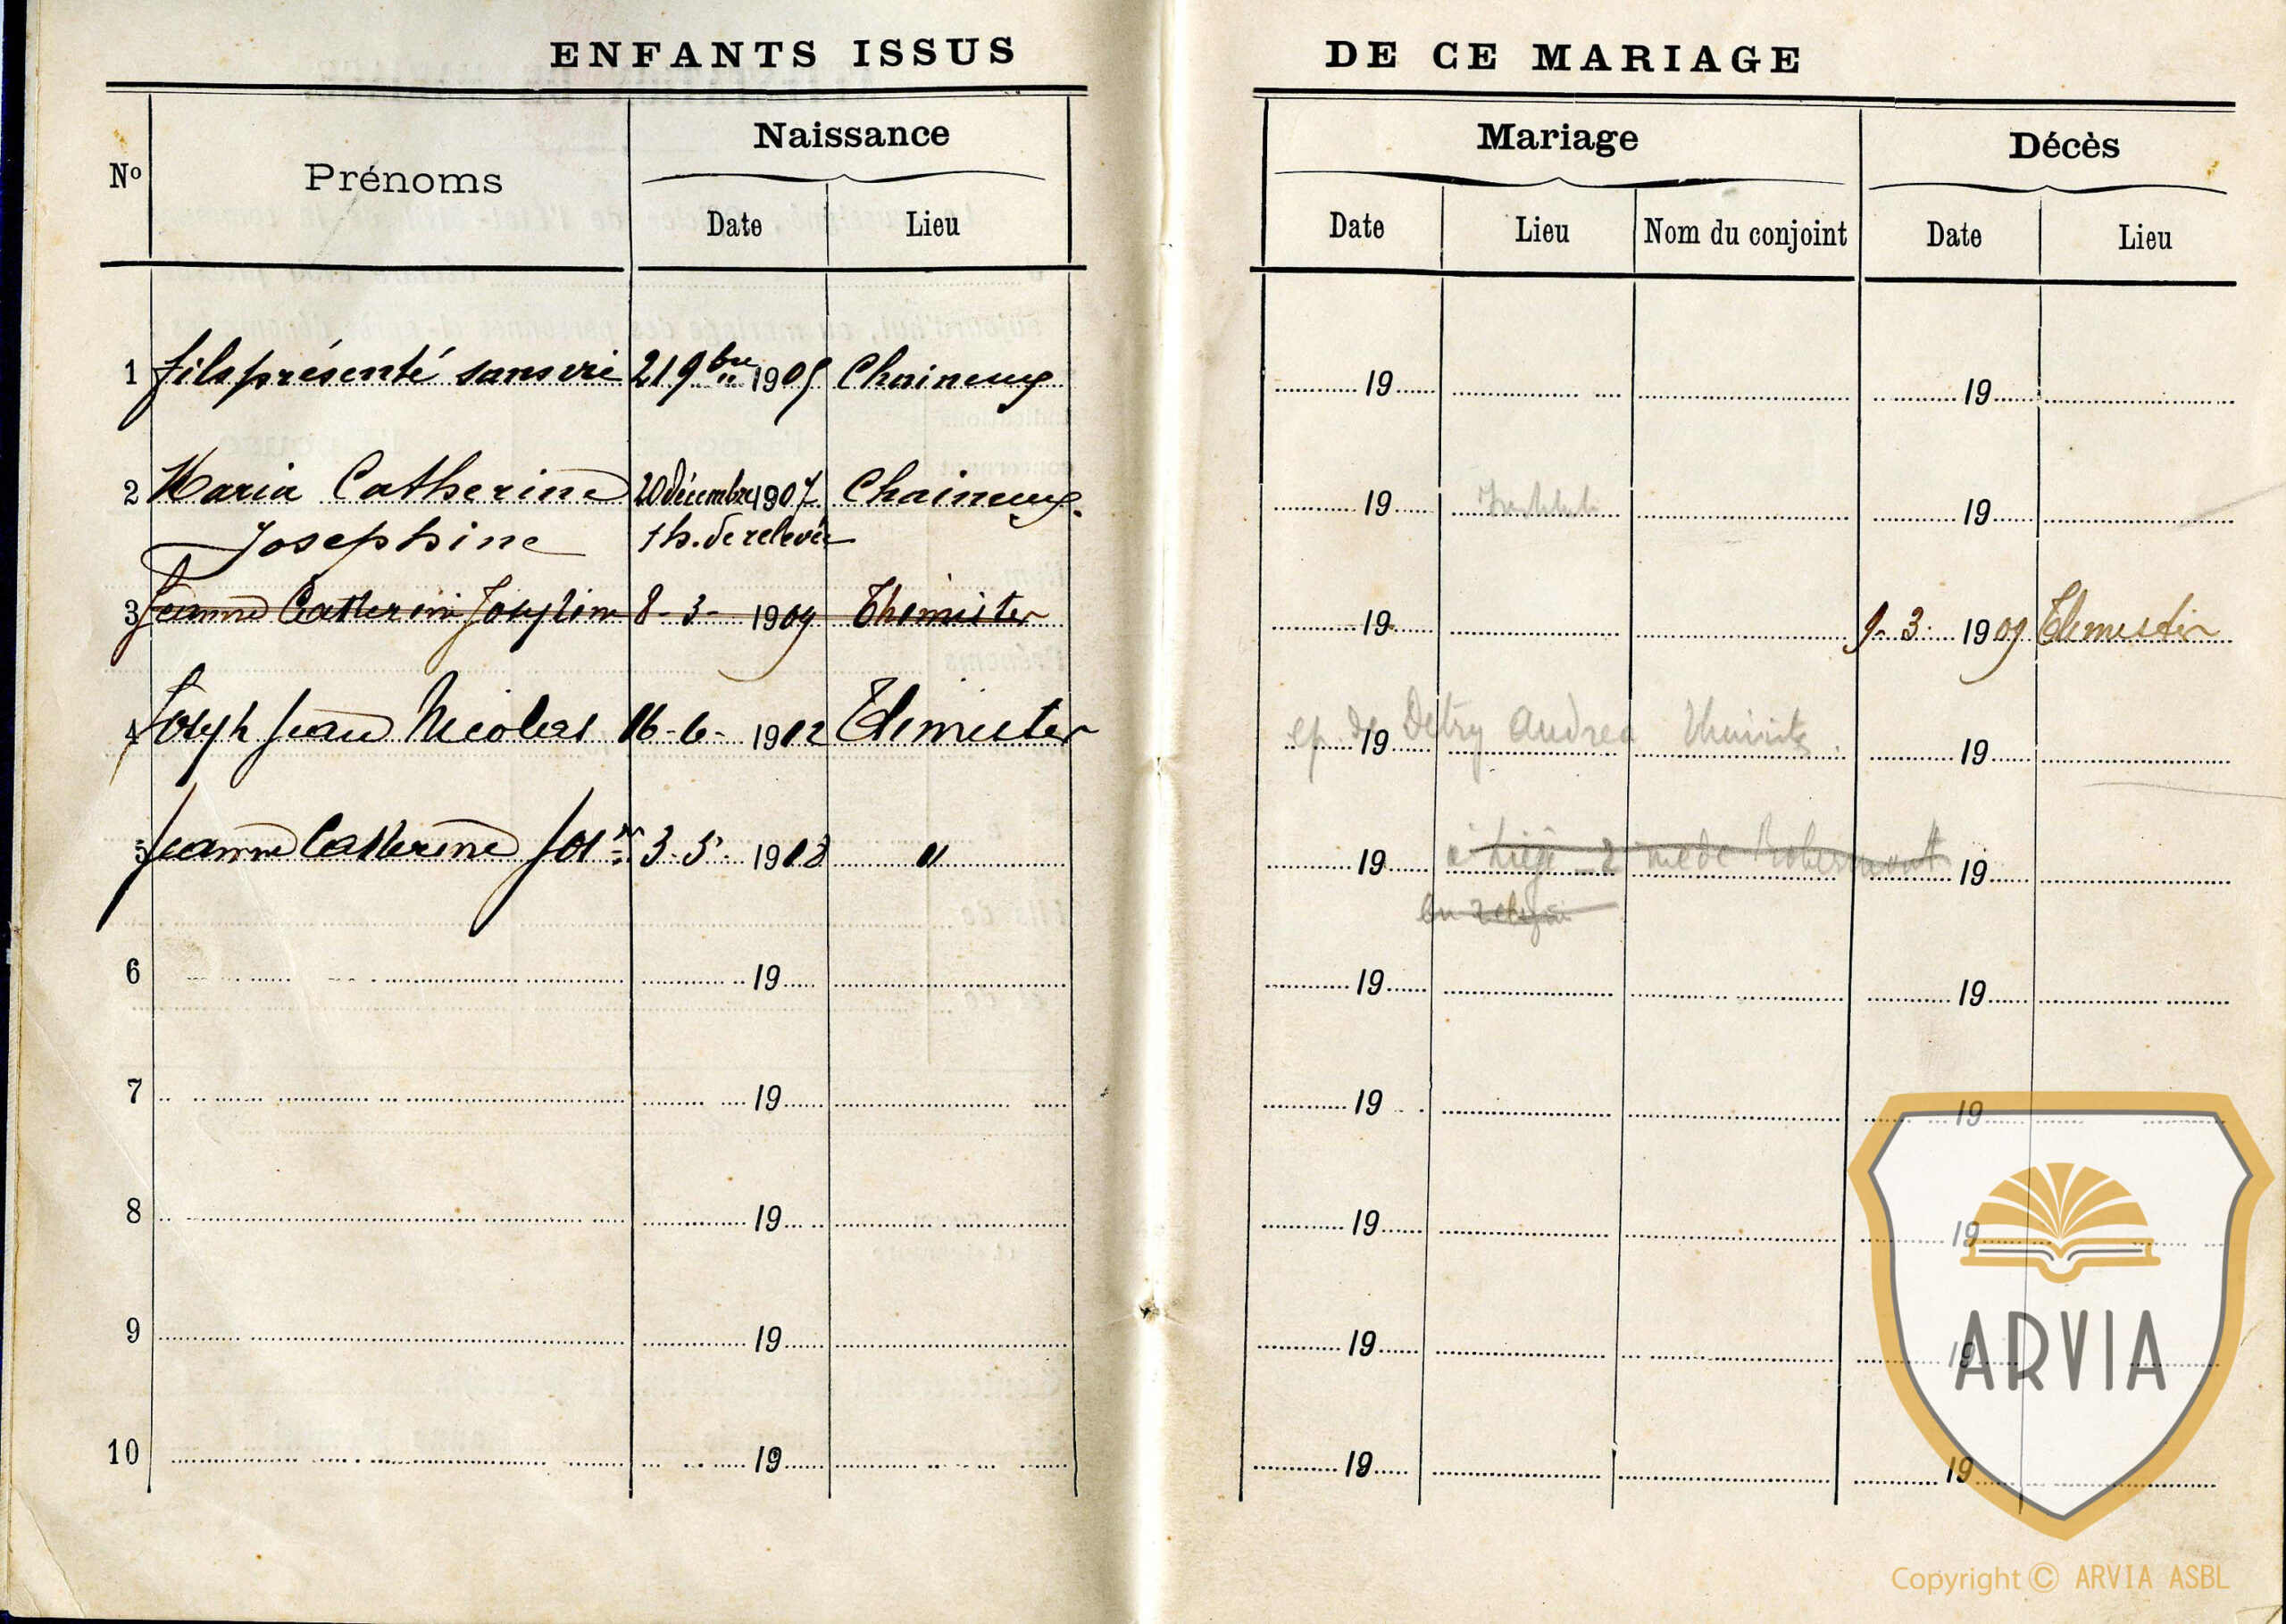 ENFANTS ISSUS DE CE MARIAGE
Nº Prénoms Naissance Mariage Décès
Date Lieu Date Lieu Nom du conjoint Date Lieu
1 fils présenté sans vie 21 9bre 1905 Chaineux 19 19
2 Maria Catherine 20 décembre 1907 Chaineux. 19 19
Josephine 1 h. de relevée
3 Jeanne Catherine Josephine 8-3-1909 Thimister 19 9-3-1909 Thimister
4 Joseph Jean Nicolas 16-6-1912 Thimister ep. de 19 Detry Andrea Thimister 19
5 Jeanne Catherine Jos 3-5-1918 " 19 à Liège 2 r de Robermont 19
en religion
6 19 19 19
7 19 19 19
8 19 19 19
9 19 19 19
10 19 19 19
ARVIA
Copyright © ARVIA ASBL